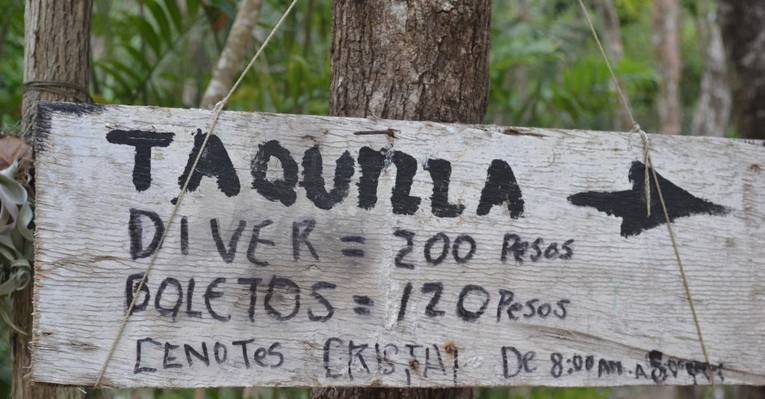 TAQUILLA
DIVER = 200 Pesos
BOLETOS = 120 Pesos
CENOTES CRISTAL De 8:00 AM. A